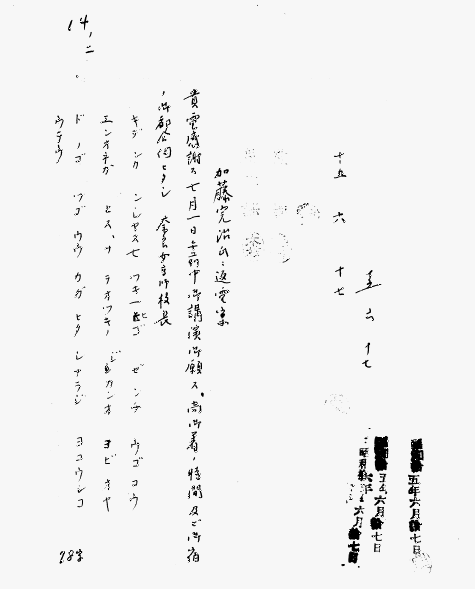 昭和拾五年六月拾七日
五年六月拾七日
六月拾七日
五 六 十七
十五 六 十七
加藤完治氏ニ返電案
貴電感謝ス七月一日午前中御講演御願ス、尚御着ノ時間及ビ御宿
ノ御都合伺ヒタシ 奈良女高師校長
キデ ンカ ンシヤス七 ツキ一ヒゴ ゼ ンチ ウゴ コウ
エンオネガ ヒス、ナ ヲオツキノ ジ カンオ ヨビ オヤ
ド ノゴ ツゴ ウウ カガ ヒタ シナラジ ヨコウシコ
ウテウ
78字
14、二